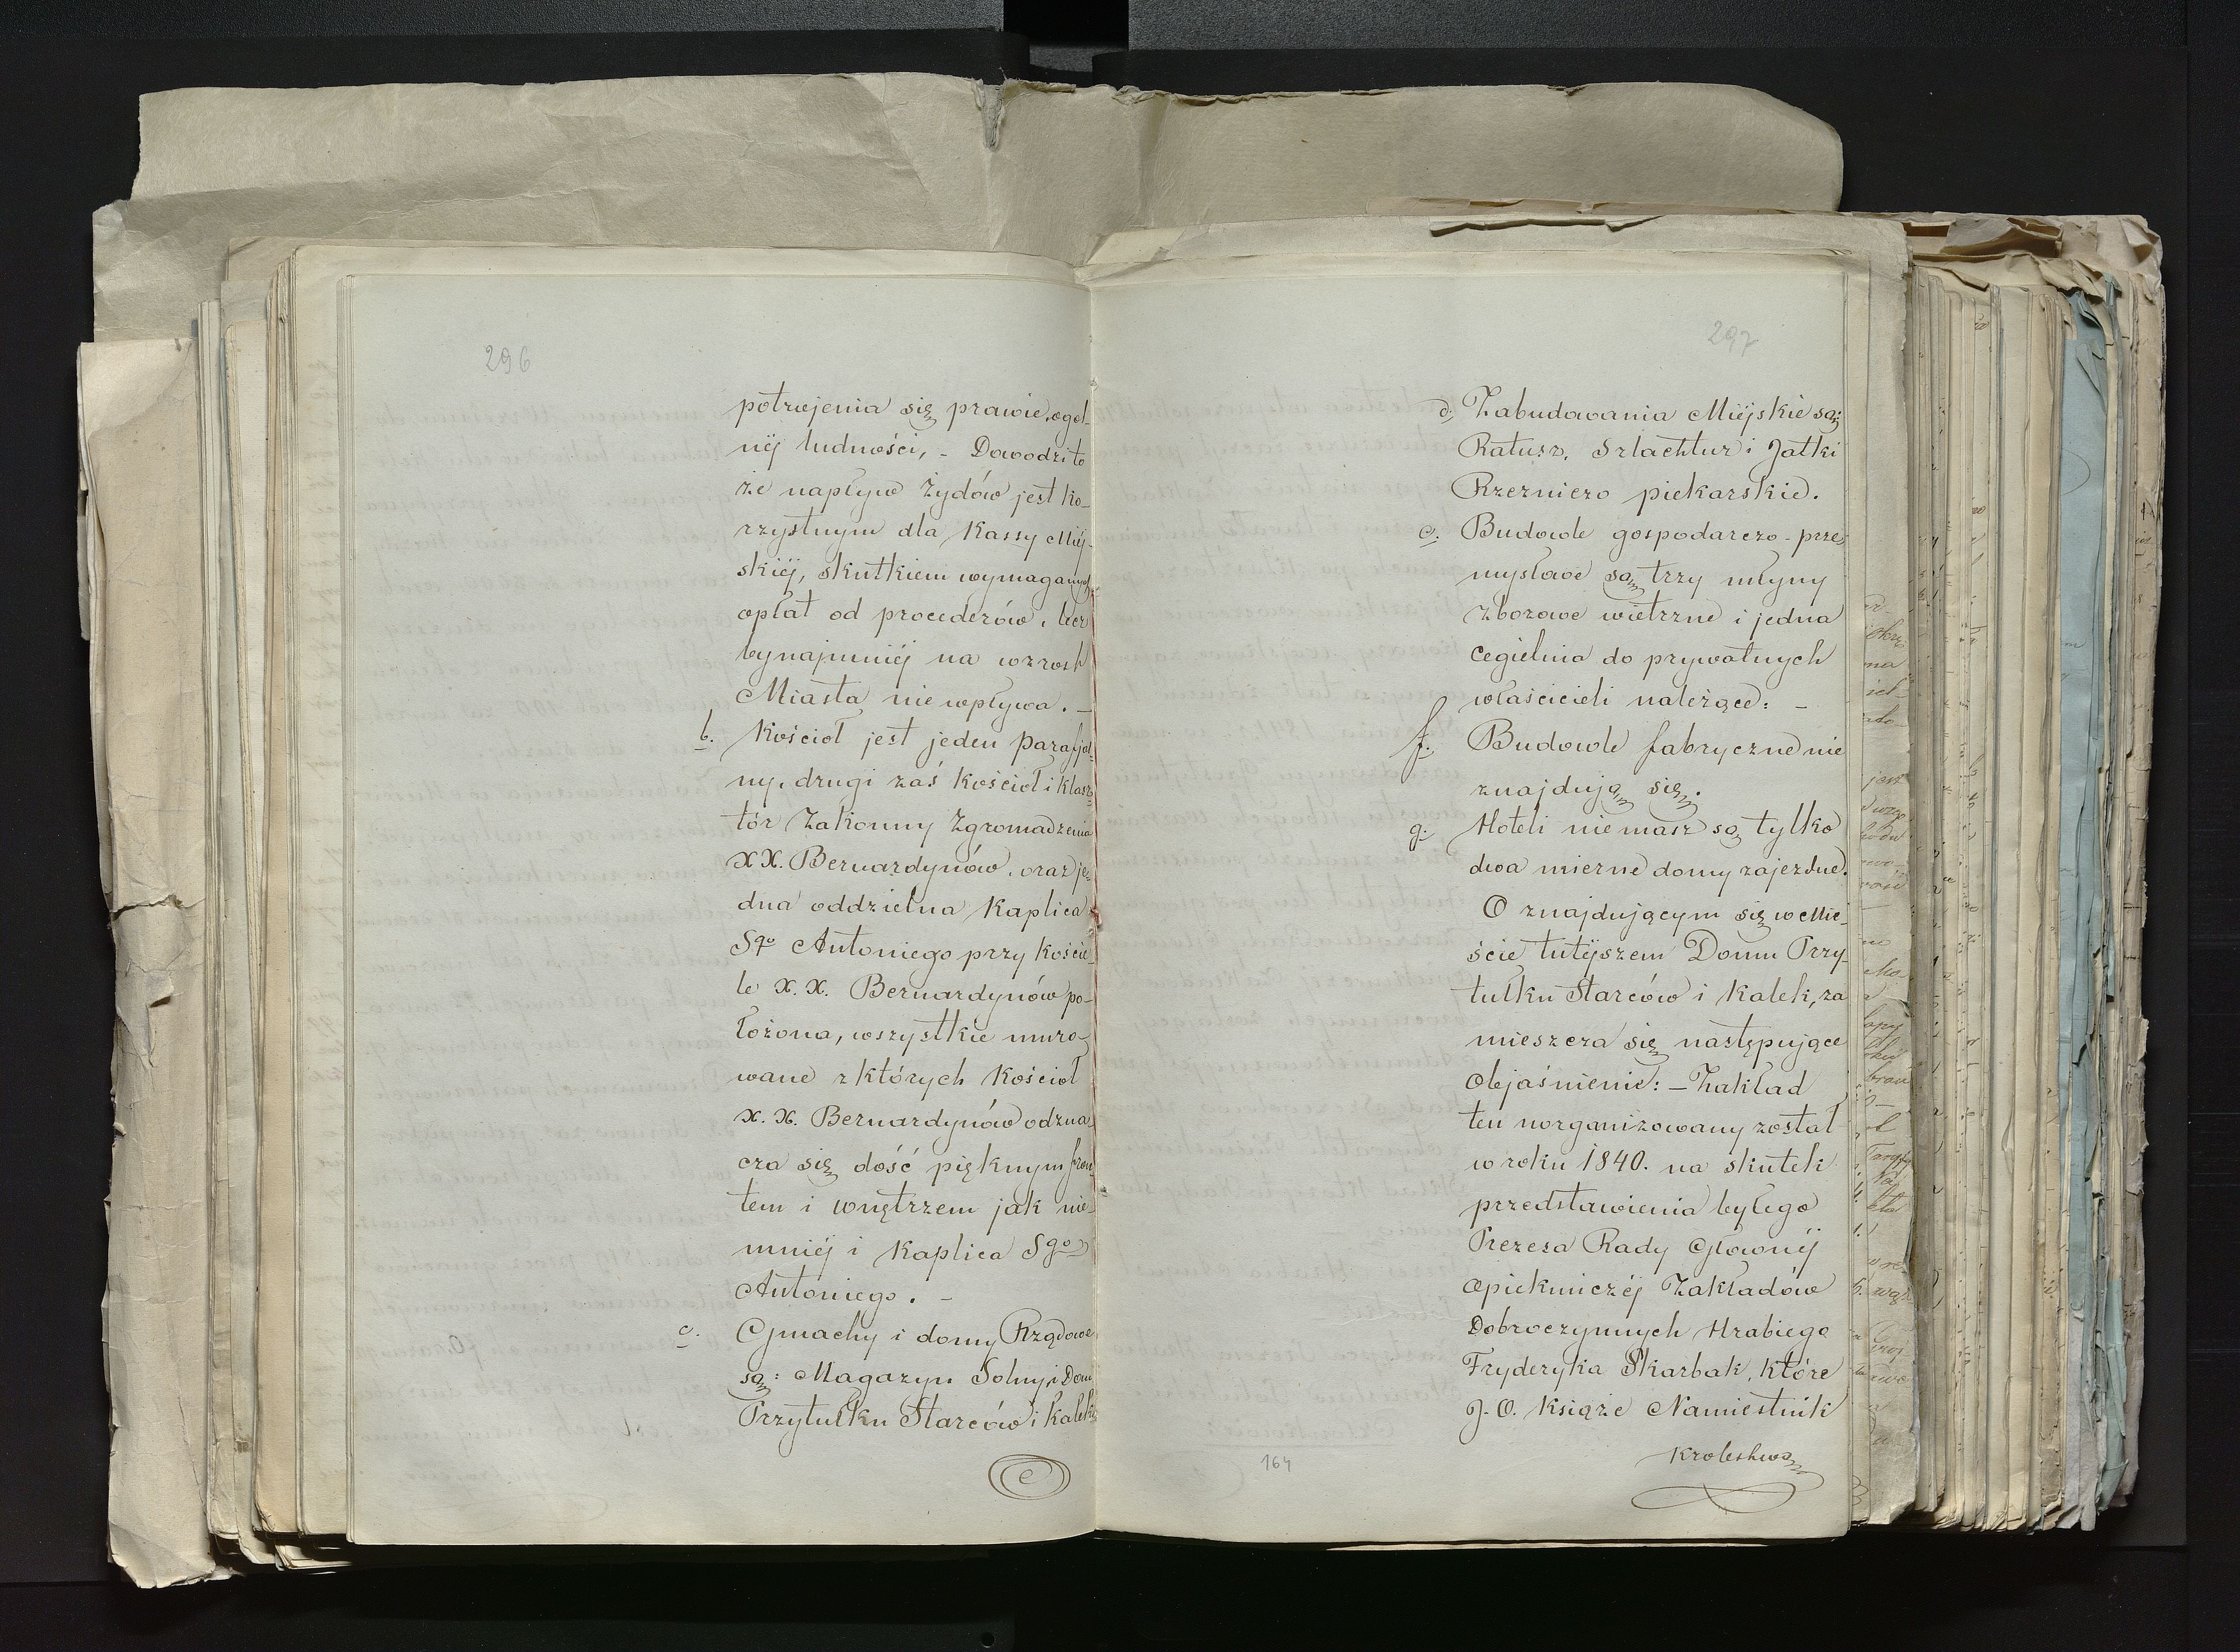 296
potrojenia się prawie, ogól-
nej ludności, - Dowodzi to
że napływ żydów jest ko-
rzystnym dla Kassy Miej-
skiéj, skutkiem wymaganych
opłat od procederów, lecz
bynajmniéj na wzrost
Miasta nie wpływa. -
b. Kościoł jest jeden Parafjal-
ny, drugi zaś kościoł i klasz-
tór Zakonny Zgromadzenia
XX. Bernardynów, oraz je-
dna oddzielna Kaplica
Sgo Antoniego przy koście-
le X. X. Bernardynów po-
łożona, wszystkie muro-
wane z których Kościoł
X. X. Bernardynów odzna-
cza się dość pięknym fron-
tem i wnętrzem jak nie-
mniéj i Kaplica Sgo
Antoniego. -
c. Gmachy i domy Rządowe
są: Magazyn Solny, i Dom
Przytułku Starców i kalek
297
d. Zabudowania Miejskie są:
Ratusz, Szlachtuz i Jatki
Rzezniczo piekarskie.
e. Budowle gospodarczo-prze-
mysłowe są trzy młyny
zbozowe wietrzne i jedna
cegielnia do prywatnych
właścicieli należące: -
f. Budowle fabryczne nie
znajdują się.
g. Hoteli niemasz są tylko
dwa mierne domy zajezdne.
O znajdującym się w Mie-
ście tutéjszem Domu Przy-
tułku Starców i Kalek, za
mieszcza się następujące
objaśnienie: - Zakład
ten uorganizowany został
w roku 1840. na skutek
przedstawienia byłego
Prezesa Rady Głownéj
opiekuńczéj Zakładów
Dobroczynnych Hrabiego
Fryderyka Skarbak, które
J. O. Książe Namiestnik
Krolestwa
164